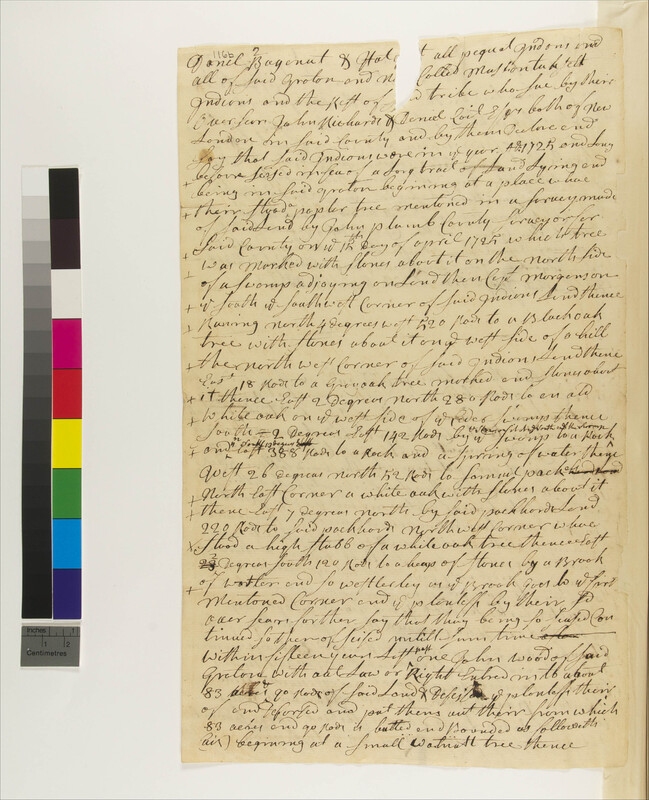 1166
Daniel Bagonut & Hal all pequot Indions and
all of said Groton and Called Mushontuk
Indions and the Rest of said tribe who sue by their
Overseers John Richards & Daniel Coit Esqr both of New
London in said County and by them Declare and
say that said Indions were in ye year 1725 and long
before seised in fea of a Long trail of Land Lying and
being in said Groton beginning at a place where
their stood a popler tree mentioned in a survey made
of said Land by John plumb County Surveyor for
said County on ye 7th Day of april 1725 which tree
was marked with stones about it on the north side
of a swomp adjoyning on Land then Capt Morgonson
ye South & southwest Corner of said Indions Land thence
Runing north 4 degrees west 520 Rods to a Black oak
tree with stones about it on ye west side of a hill
the north west Corner of said Indions Land thence
East 18 Rods to a Grey oak tree marked and stones about
it thence East 2 Degrees north 280 Rods to an old
White oak on ye west side of ye ceder swomp thence
South 2 Degrees East 142 Rods by ye swomp to a Rock
and East 388 Rods to a Rock and a spring of water thence
West 26 degrees north 52 Rods to Samuel packards
North East Corner a white oak with stones about it
thence East 7 degrees north by said packhords Land
220 Rods to said packhords north west Corner where
stood a high stubb of a white oak tree thence East
Degrees South 120 Rods to a heap of stones by a Brook
of water and so westerley as ye Brook goes to ye first
Mentioned Corner and ye plantefs by their sd
overseers forther say that they being so seised Con
tinued possess of seised untill sum time
within fifteen years Last past one John Wood of said
Groton with out Law or Right Entred in to about
83 acres 90 Rods of said Land & ye plantefs their
of and and put them out their from which
83 acres and 90 Rods is butted and Bounded as followeth
(viz) Begining at a small walnutt tree thence